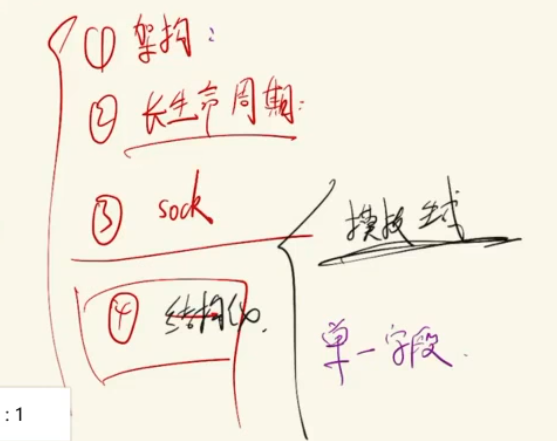 ① 架构:
② 长生命周期:
③ sock
④ 结构化.
模板生成
单一字段.
: 1